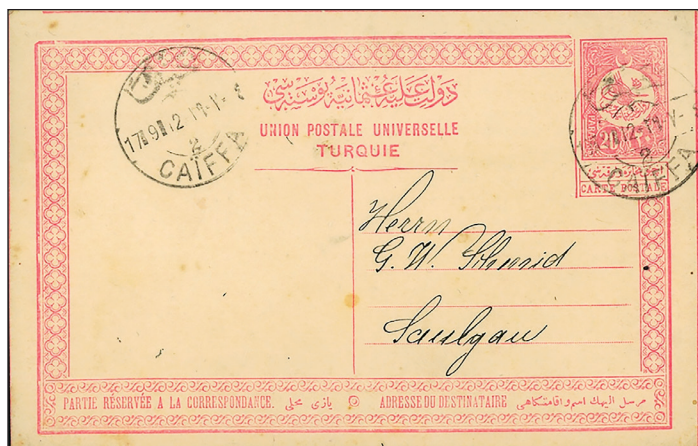 دولت عليه عثمانيه پوسته سى
UNION POSTALE UNIVERSELLE
TURQUIE
2
CAÏFFA
20
CARTE POSTALE
2
CAÏFFA
Herrn
G. W. Schmid
Saulgau
PARTIE RÉSERVÉE A LA CORRESPONDANCE. يازى محلى
ADRESSE DU DESTINATAIRE مرسل اليهك اسم و اقامتكاهى